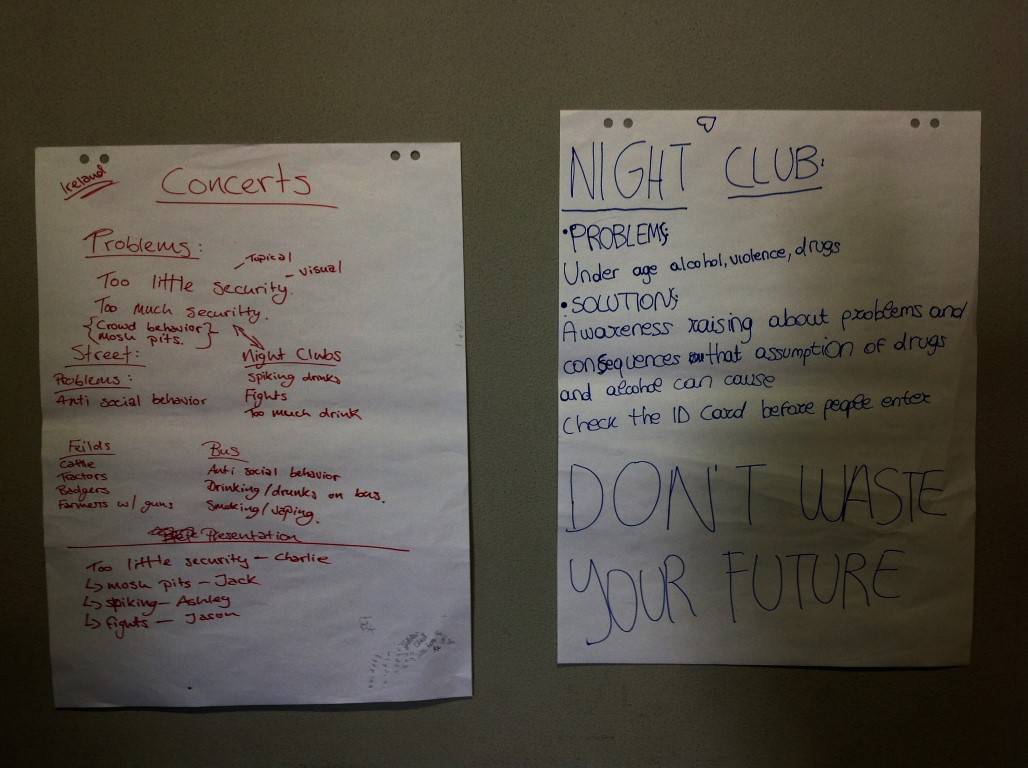 Ireland
Concerts
Problems:
Topical
Too little security.
visual
Too much security.
{Crowd behavior}
mosh pits.
Street:
Problems:
Anti social behavior
Night Clubs
Spiking drinks
Fights
Too much drink
Feilds
Cattle
Tractors
Badgers
Farmers w/ guns
Bus
Anti social behavior
Drinking/drunks on bus.
Smoking/vaping.
Presentation
Too little security - Charlie
↳ mosh pits - Jack
↳ spiking - Ashley
↳ fights - Jason
NIGHT CLUB:
• PROBLEMS:
Under age alcohol, violence, drugs
• SOLUTIONS:
Awareness raising about problems and
consequences that assumption of drugs
and alcohol can cause
Check the ID Card before people enter
DON'T WASTE
YOUR FUTURE